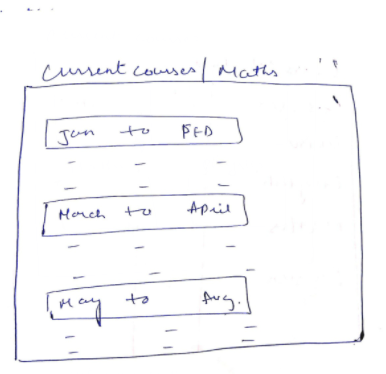 Current courses / Maths
Jan to FED
March to April
May to Aug.